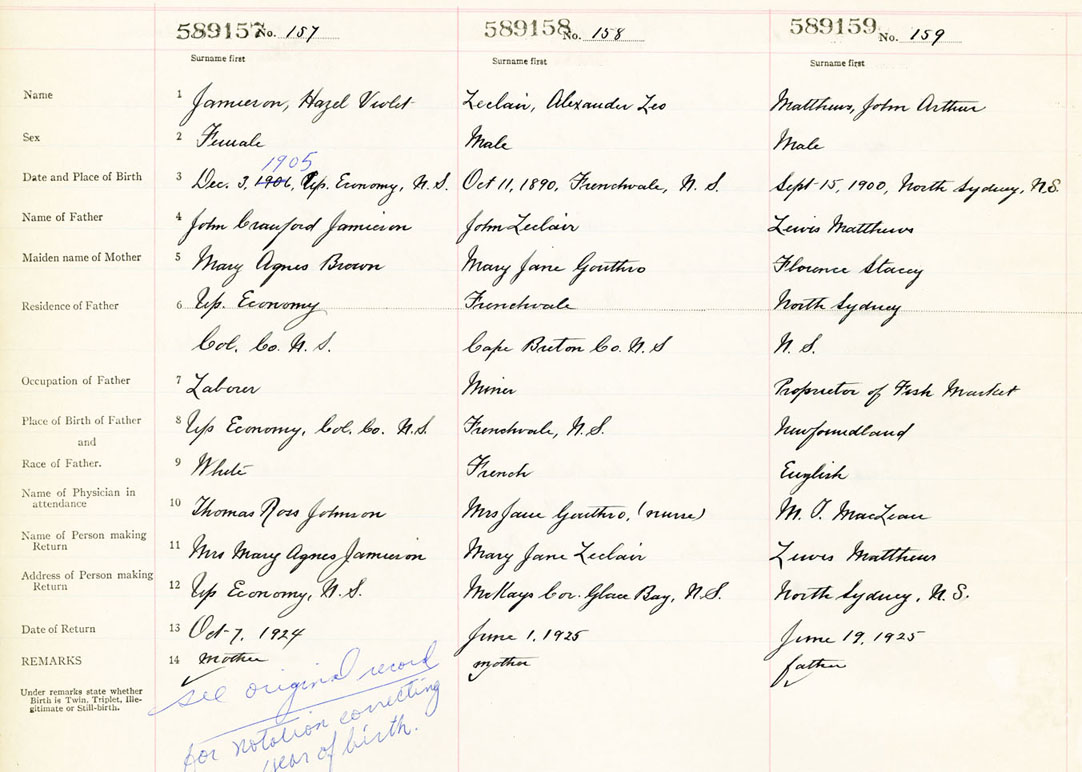 589157 No. 157 589158 No. 158 589159 No. 159
Surname first Surname first Surname first
Name 1 Jamieson, Hazel Violet Leclair, Alexander Leo Matthews, John Arthur
Sex 2 Female Male Male
1905
Date and Place of Birth 3 Dec. 3, 1906, Up. Economy, N.S. Oct 11, 1890, Frenchvale, N.S. Sept 15, 1900, North Sydney, N.S.
Name of Father 4 John Crawford Jamieson John Leclair Lewis Matthews
Maiden name of Mother 5 Mary Agnes Brown Mary Jane Gouthro Florence Stacey
Residence of Father 6 Up. Economy Frenchvale North Sydney
Col. Co. N.S. Cape Breton Co. N.S N.S.
Occupation of Father 7 Laborer Miner Proprietor of Fish Market
Place of Birth of Father 8 Up Economy, Col. Co. N.S. Frenchvale, N.S. Newfoundland
and
Race of Father. 9 White French English
Name of Physician in
attendance 10 Thomas Ross Johnson Mrs Jane Gouthro, (nurse) M. T. MacLean
Name of Person making
Return 11 Mrs Mary Agnes Jamieson Mary Jane Leclair Lewis Matthews
Address of Person making
Return 12 Up Economy, N.S. McKays Cor. Glace Bay, N.S. North Sydney, N.S.
Date of Return 13 Oct 7, 1924 June 1, 1925 June 19, 1925
REMARKS 14 mother mother father
Under remarks state whether
Birth is Twin, Triplet, Ille-
gitimate or Still-birth.
see original record
for notation correcting
year of birth.